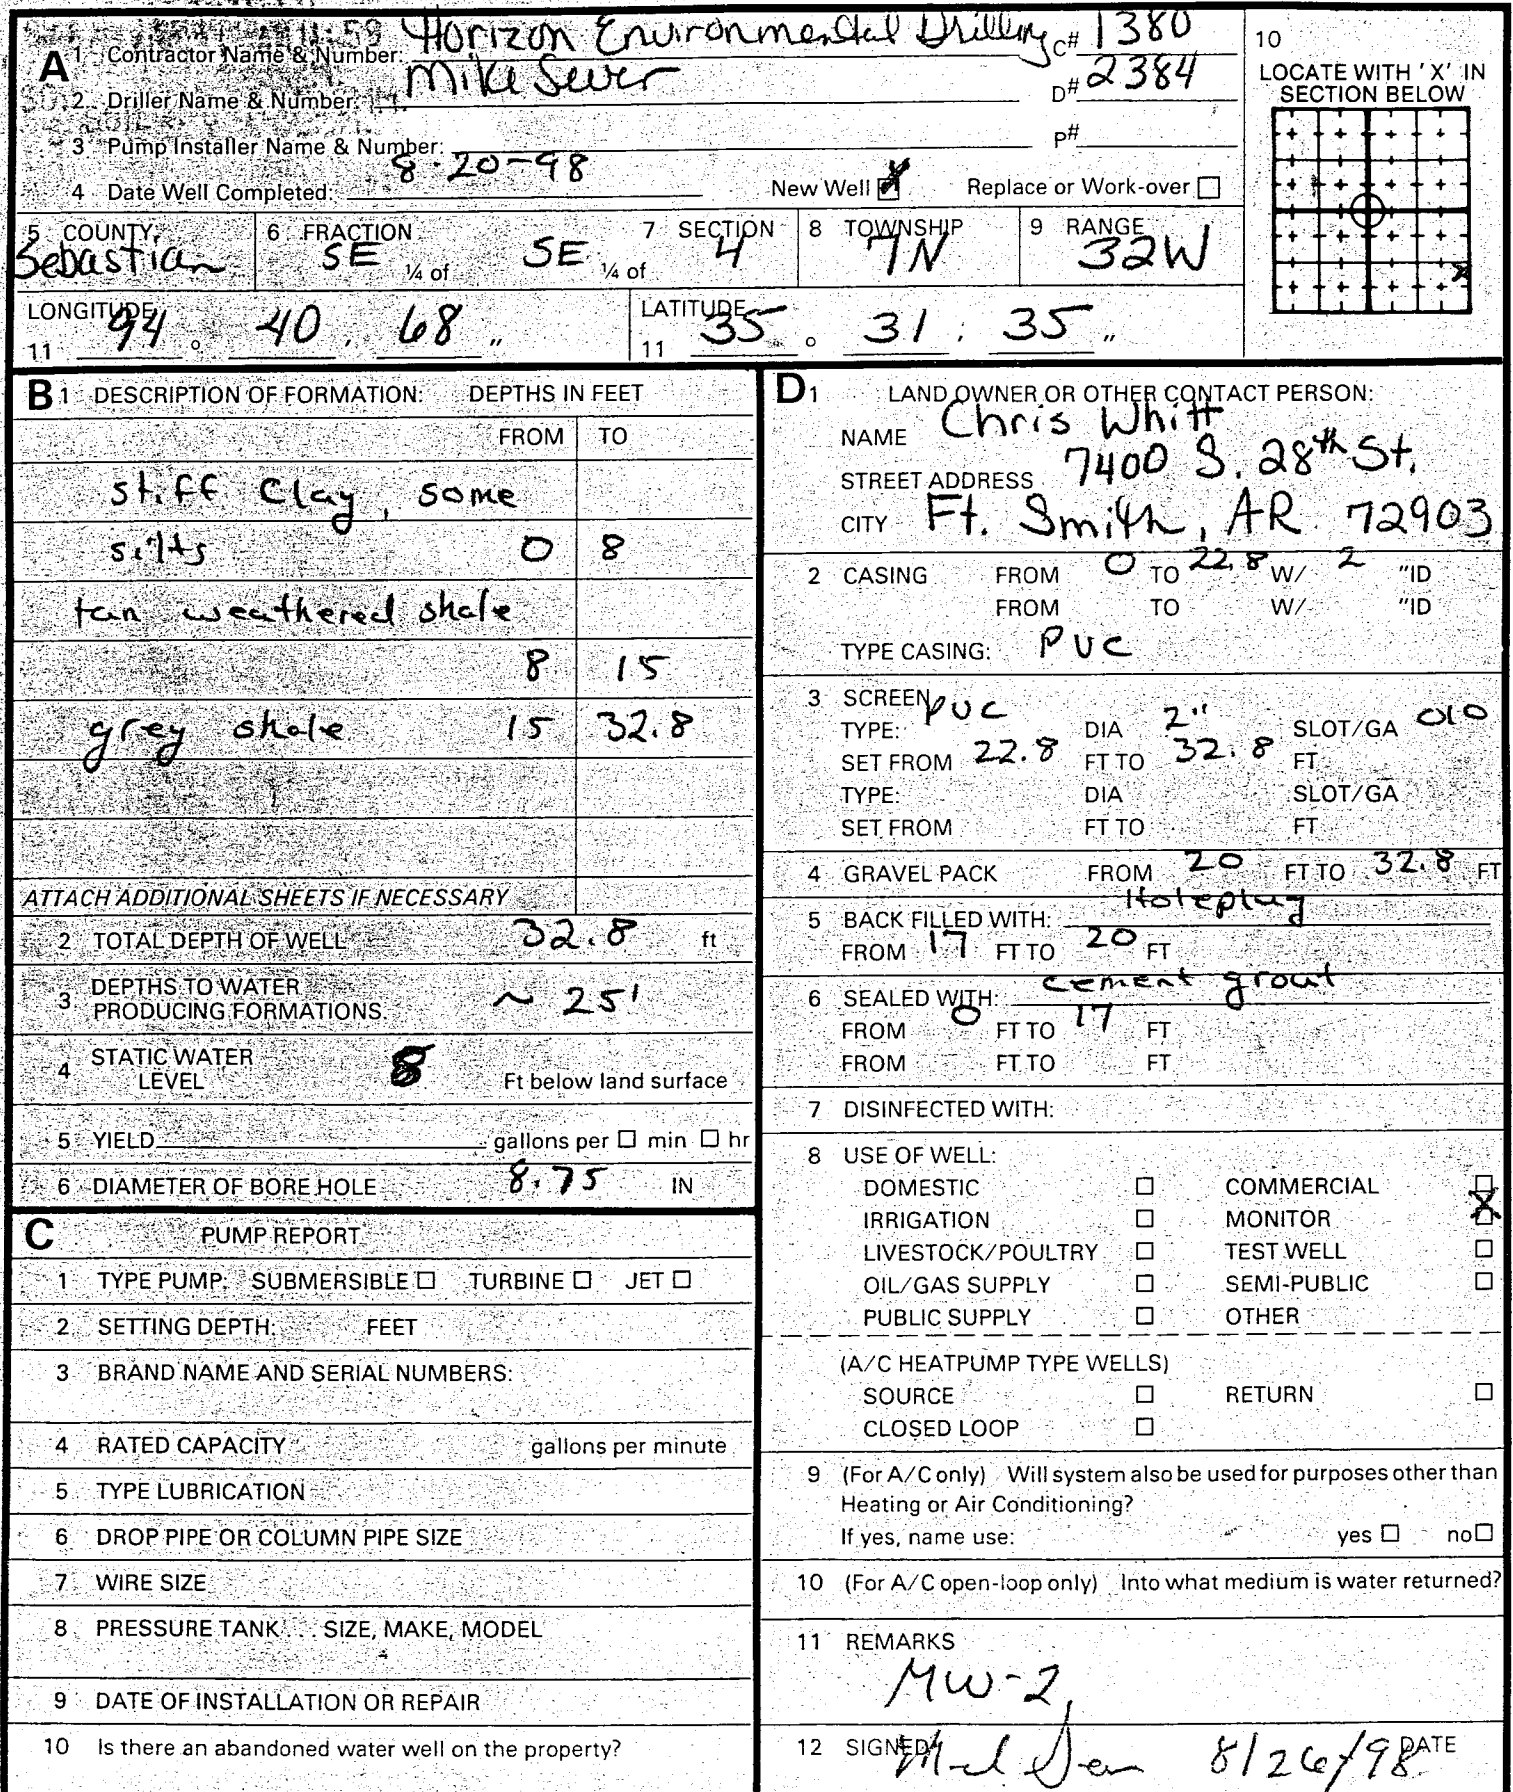 11:59
A 1 Contractor Name & Number: Horizon Environmental Drilling C# 1380
2 Driller Name & Number: Mike Sever D# 2384
3 Pump Installer Name & Number: P#
4 Date Well Completed: 8-20-98 New Well X Replace or Work-over
10
LOCATE WITH 'X' IN
SECTION BELOW
X
5 COUNTY 6 FRACTION 7 SECTION 8 TOWNSHIP 9 RANGE
Sebastian SE ¼ of SE ¼ of 4 7N 32W
LONGITUDE LATITUDE
11 94 ° 40 ' 68 " 11 35 ° 31 ' 35 "
B 1 DESCRIPTION OF FORMATION: DEPTHS IN FEET
FROM TO
stiff clay, some
silts 0 8
tan weathered shale
8 15
grey shale 15 32.8
ATTACH ADDITIONAL SHEETS IF NECESSARY
2 TOTAL DEPTH OF WELL 32.8 ft
3 DEPTHS TO WATER
PRODUCING FORMATIONS. ~ 25'
4 STATIC WATER
LEVEL 8 Ft below land surface
5 YIELD gallons per □ min □ hr
6 DIAMETER OF BORE HOLE 8.75 IN
C PUMP REPORT
1 TYPE PUMP: SUBMERSIBLE □ TURBINE □ JET □
2 SETTING DEPTH: FEET
3 BRAND NAME AND SERIAL NUMBERS:
4 RATED CAPACITY gallons per minute
5 TYPE LUBRICATION
6 DROP PIPE OR COLUMN PIPE SIZE
7 WIRE SIZE
8 PRESSURE TANK . . . SIZE, MAKE, MODEL
9 DATE OF INSTALLATION OR REPAIR
10 Is there an abandoned water well on the property?
D 1 LAND OWNER OR OTHER CONTACT PERSON:
NAME Chris Whitt
STREET ADDRESS 7400 S. 28th St.
CITY Ft. Smith, AR 72903
2 CASING FROM 0 TO 22.8 W/ 2 "ID
FROM TO W/ "ID
TYPE CASING: PVC
3 SCREEN
TYPE: PVC DIA 2" SLOT/GA 010
SET FROM 22.8 FT TO 32.8 FT
TYPE: DIA SLOT/GA
SET FROM FT TO FT
4 GRAVEL PACK FROM 20 FT TO 32.8 FT
5 BACK FILLED WITH: Holeplug
FROM 17 FT TO 20 FT
6 SEALED WITH: cement grout
FROM 0 FT TO 17 FT
FROM FT TO FT
7 DISINFECTED WITH:
8 USE OF WELL:
DOMESTIC □ COMMERCIAL □
IRRIGATION □ MONITOR X
LIVESTOCK/POULTRY □ TEST WELL □
OIL/GAS SUPPLY □ SEMI-PUBLIC □
PUBLIC SUPPLY □ OTHER
(A/C HEATPUMP TYPE WELLS)
SOURCE □ RETURN □
CLOSED LOOP □
9 (For A/C only) Will system also be used for purposes other than
Heating or Air Conditioning?
If yes, name use: yes □ no □
10 (For A/C open-loop only) Into what medium is water returned?
11 REMARKS
MW-2
12 SIGNED 8/26/98 DATE